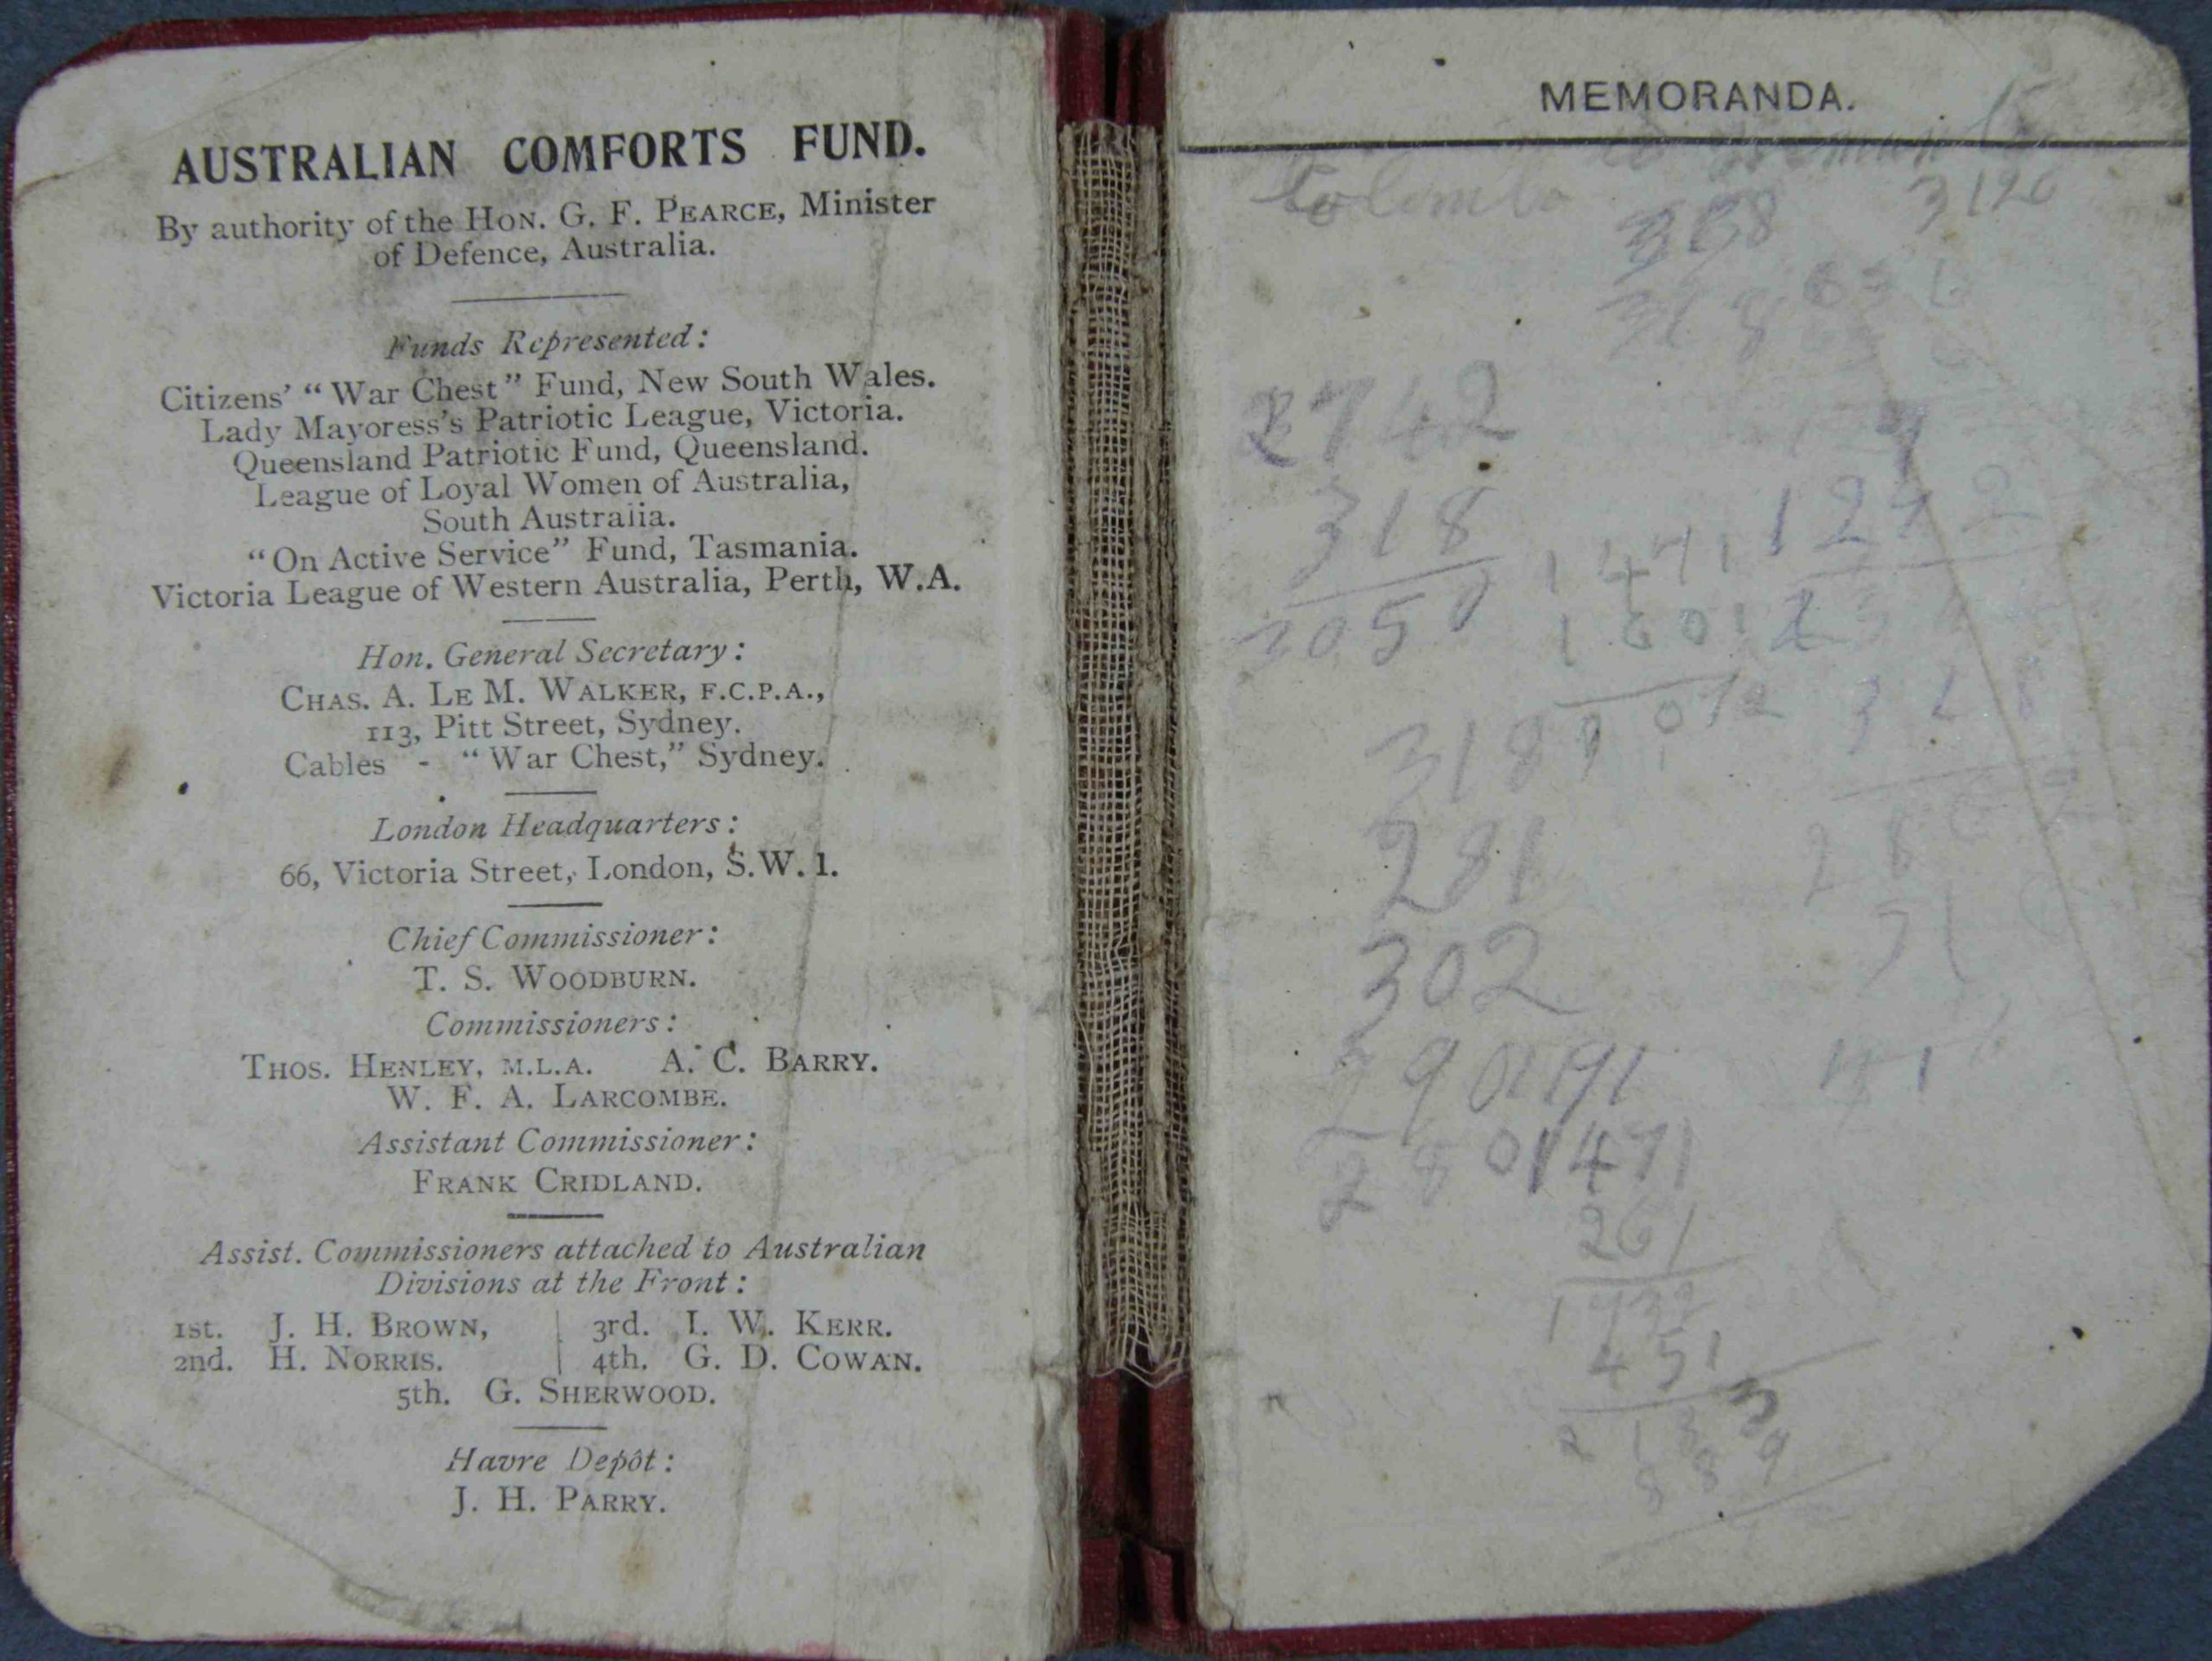 AUSTRALIAN COMFORTS FUND.
By authority of the HON. G. F. PEARCE, Minister
of Defence, Australia.
Funds Represented:
Citizens' “War Chest” Fund, New South Wales.
Lady Mayoress's Patriotic League, Victoria.
Queensland Patriotic Fund, Queensland.
League of Loyal Women of Australia,
South Australia.
“On Active Service” Fund, Tasmania.
Victoria League of Western Australia, Perth, W.A.
Hon. General Secretary:
CHAS. A. LE M. WALKER, F.C.P.A.,
113, Pitt Street, Sydney.
Cables - “War Chest,” Sydney.
London Headquarters:
66, Victoria Street, London, S.W.1.
Chief Commissioner:
T. S. WOODBURN.
Commissioners:
THOS. HENLEY, M.L.A. A. C. BARRY.
W. F. A. LARCOMBE.
Assistant Commissioner:
FRANK CRIDLAND.
Assist. Commissioners attached to Australian
Divisions at the Front:
1st. J. H. BROWN, 3rd. I. W. KERR.
2nd. H. NORRIS. 4th. G. D. COWAN.
5th. G. SHERWOOD.
Havre Depôt:
J. H. PARRY.
MEMORANDA.
Colombo to
3120
2742
318
1471
3050
318
281
302
1471
261
1732
451